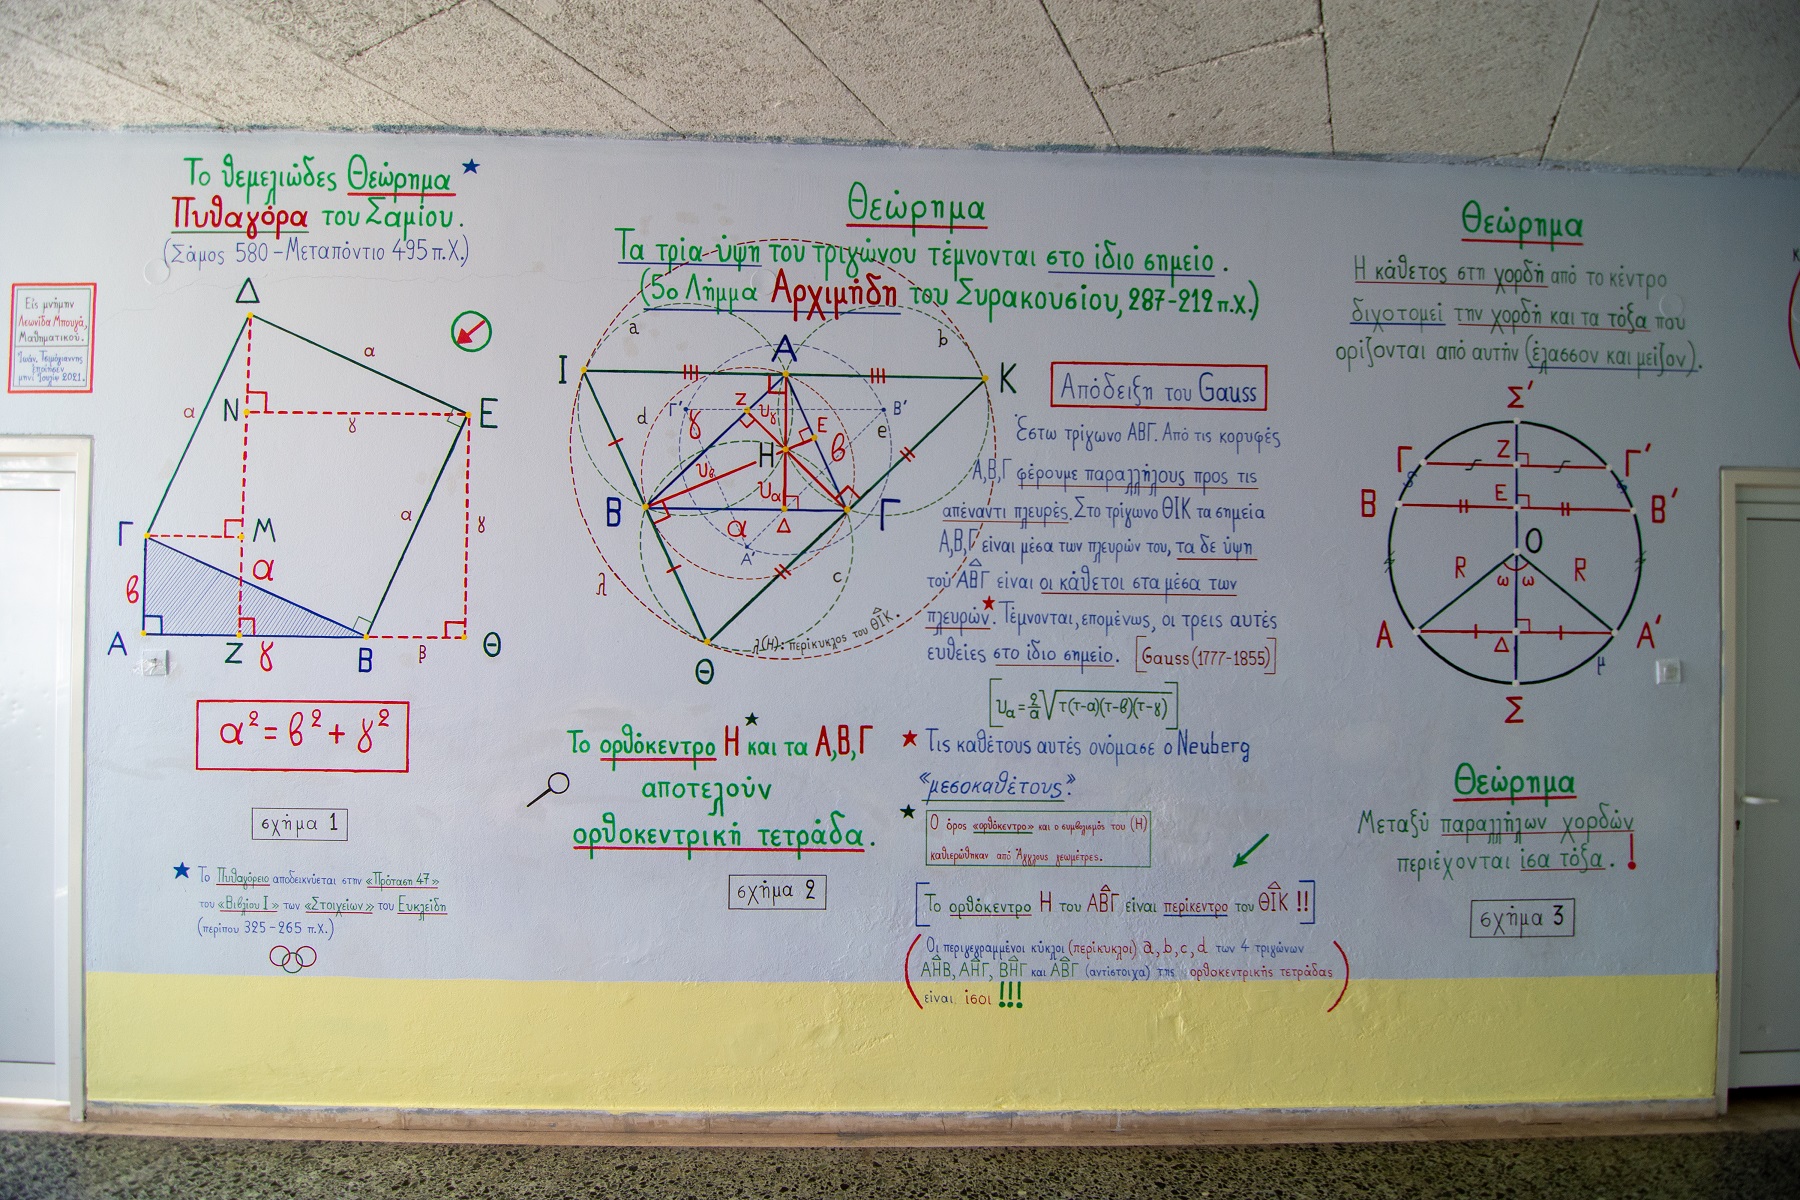 Το θεμελιώδες Θεώρημα
Πυθαγόρα του Σαμίου.
(Σάμος 580 - Μεταπόντιο 495 π.Χ.)
Εἰς μνήμην
Λεωνίδα Μπουγά,
Μαθηματικού.
μηνί Ἰουλίῳ 2021.
Δ
α
α
Ν
γ
Ε
α
γ
Γ
Μ
β
α
Α
Ζ
γ
Β
β
Θ
α² = β² + γ²
σχήμα 1
★ Το Πυθαγόρειο αποδεικνύεται στην «Πρόταση 47»
του «Βιβλίου Ι» των «Στοιχείων» του Ευκλείδη
(περίπου 325 - 265 π.Χ.)
Θεώρημα
Τα τρία ύψη του τριγώνου τέμνονται στο ίδιο σημείο.
(5ο Λήμμα Αρχιμήδη του Συρακουσίου, 287-212 π.Χ.)
a
b
Ι
Α
Κ
d
Γ'
γ
Ζ
υγ
Β'
e
Ε
β
Η
υβ
υα
Β
α
Δ
Γ
Α'
c
λ
λ(Η): περίκυκλος του ΘΙ̂Κ.
Θ
Το ορθόκεντρο Η★ και τα Α,Β,Γ
αποτελούν
ορθοκεντρική τετράδα.
σχήμα 2
Απόδειξη του Gauss
Έστω τρίγωνο ΑΒΓ. Από τις κορυφές
Α,Β,Γ φέρουμε παραλλήλους προς τις
απέναντι πλευρές. Στο τρίγωνο ΘΙΚ τα σημεία
Α,Β,Γ είναι μέσα των πλευρών του, τα δε ύψη
του ΑΒ̂Γ είναι οι κάθετοι στα μέσα των
πλευρών★. Τέμνονται, επομένως, οι τρεις αυτές
ευθείες στο ίδιο σημείο. [Gauss (1777-1855)]
[υα = 2/α √τ(τ-α)(τ-β)(τ-γ)]
★ Τις καθέτους αυτές ονόμασε ο Neuberg
«μεσοκαθέτους».
★ Ο όρος «ορθόκεντρο» και ο συμβολισμός του (Η)
καθιερώθηκαν από Άγγλους γεωμέτρες.
[Το ορθόκεντρο Η του ΑΒ̂Γ είναι περίκεντρο του ΘΙ̂Κ !!]
(Οι περιγεγραμμένοι κύκλοι (περίκυκλοι) a, b, c, d των 4 τριγώνων
ΑΗ̂Β, ΑΗ̂Γ, ΒΗ̂Γ και ΑΒ̂Γ (αντίστοιχα) της ορθοκεντρικής τετράδας
είναι ίσοι !!!)
Θεώρημα
Η κάθετος στη χορδή από το κέντρο
διχοτομεί την χορδή και τα τόξα που
ορίζονται από αυτήν (έλασσον και μείζον).
Σ'
Γ
Ζ
Γ'
Β
Ε
Β'
Ο
R
ω
ω
R
Α
Δ
Α'
μ
Σ
Θεώρημα
Μεταξύ παραλλήλων χορδών
περιέχονται ίσα τόξα. !
σχήμα 3